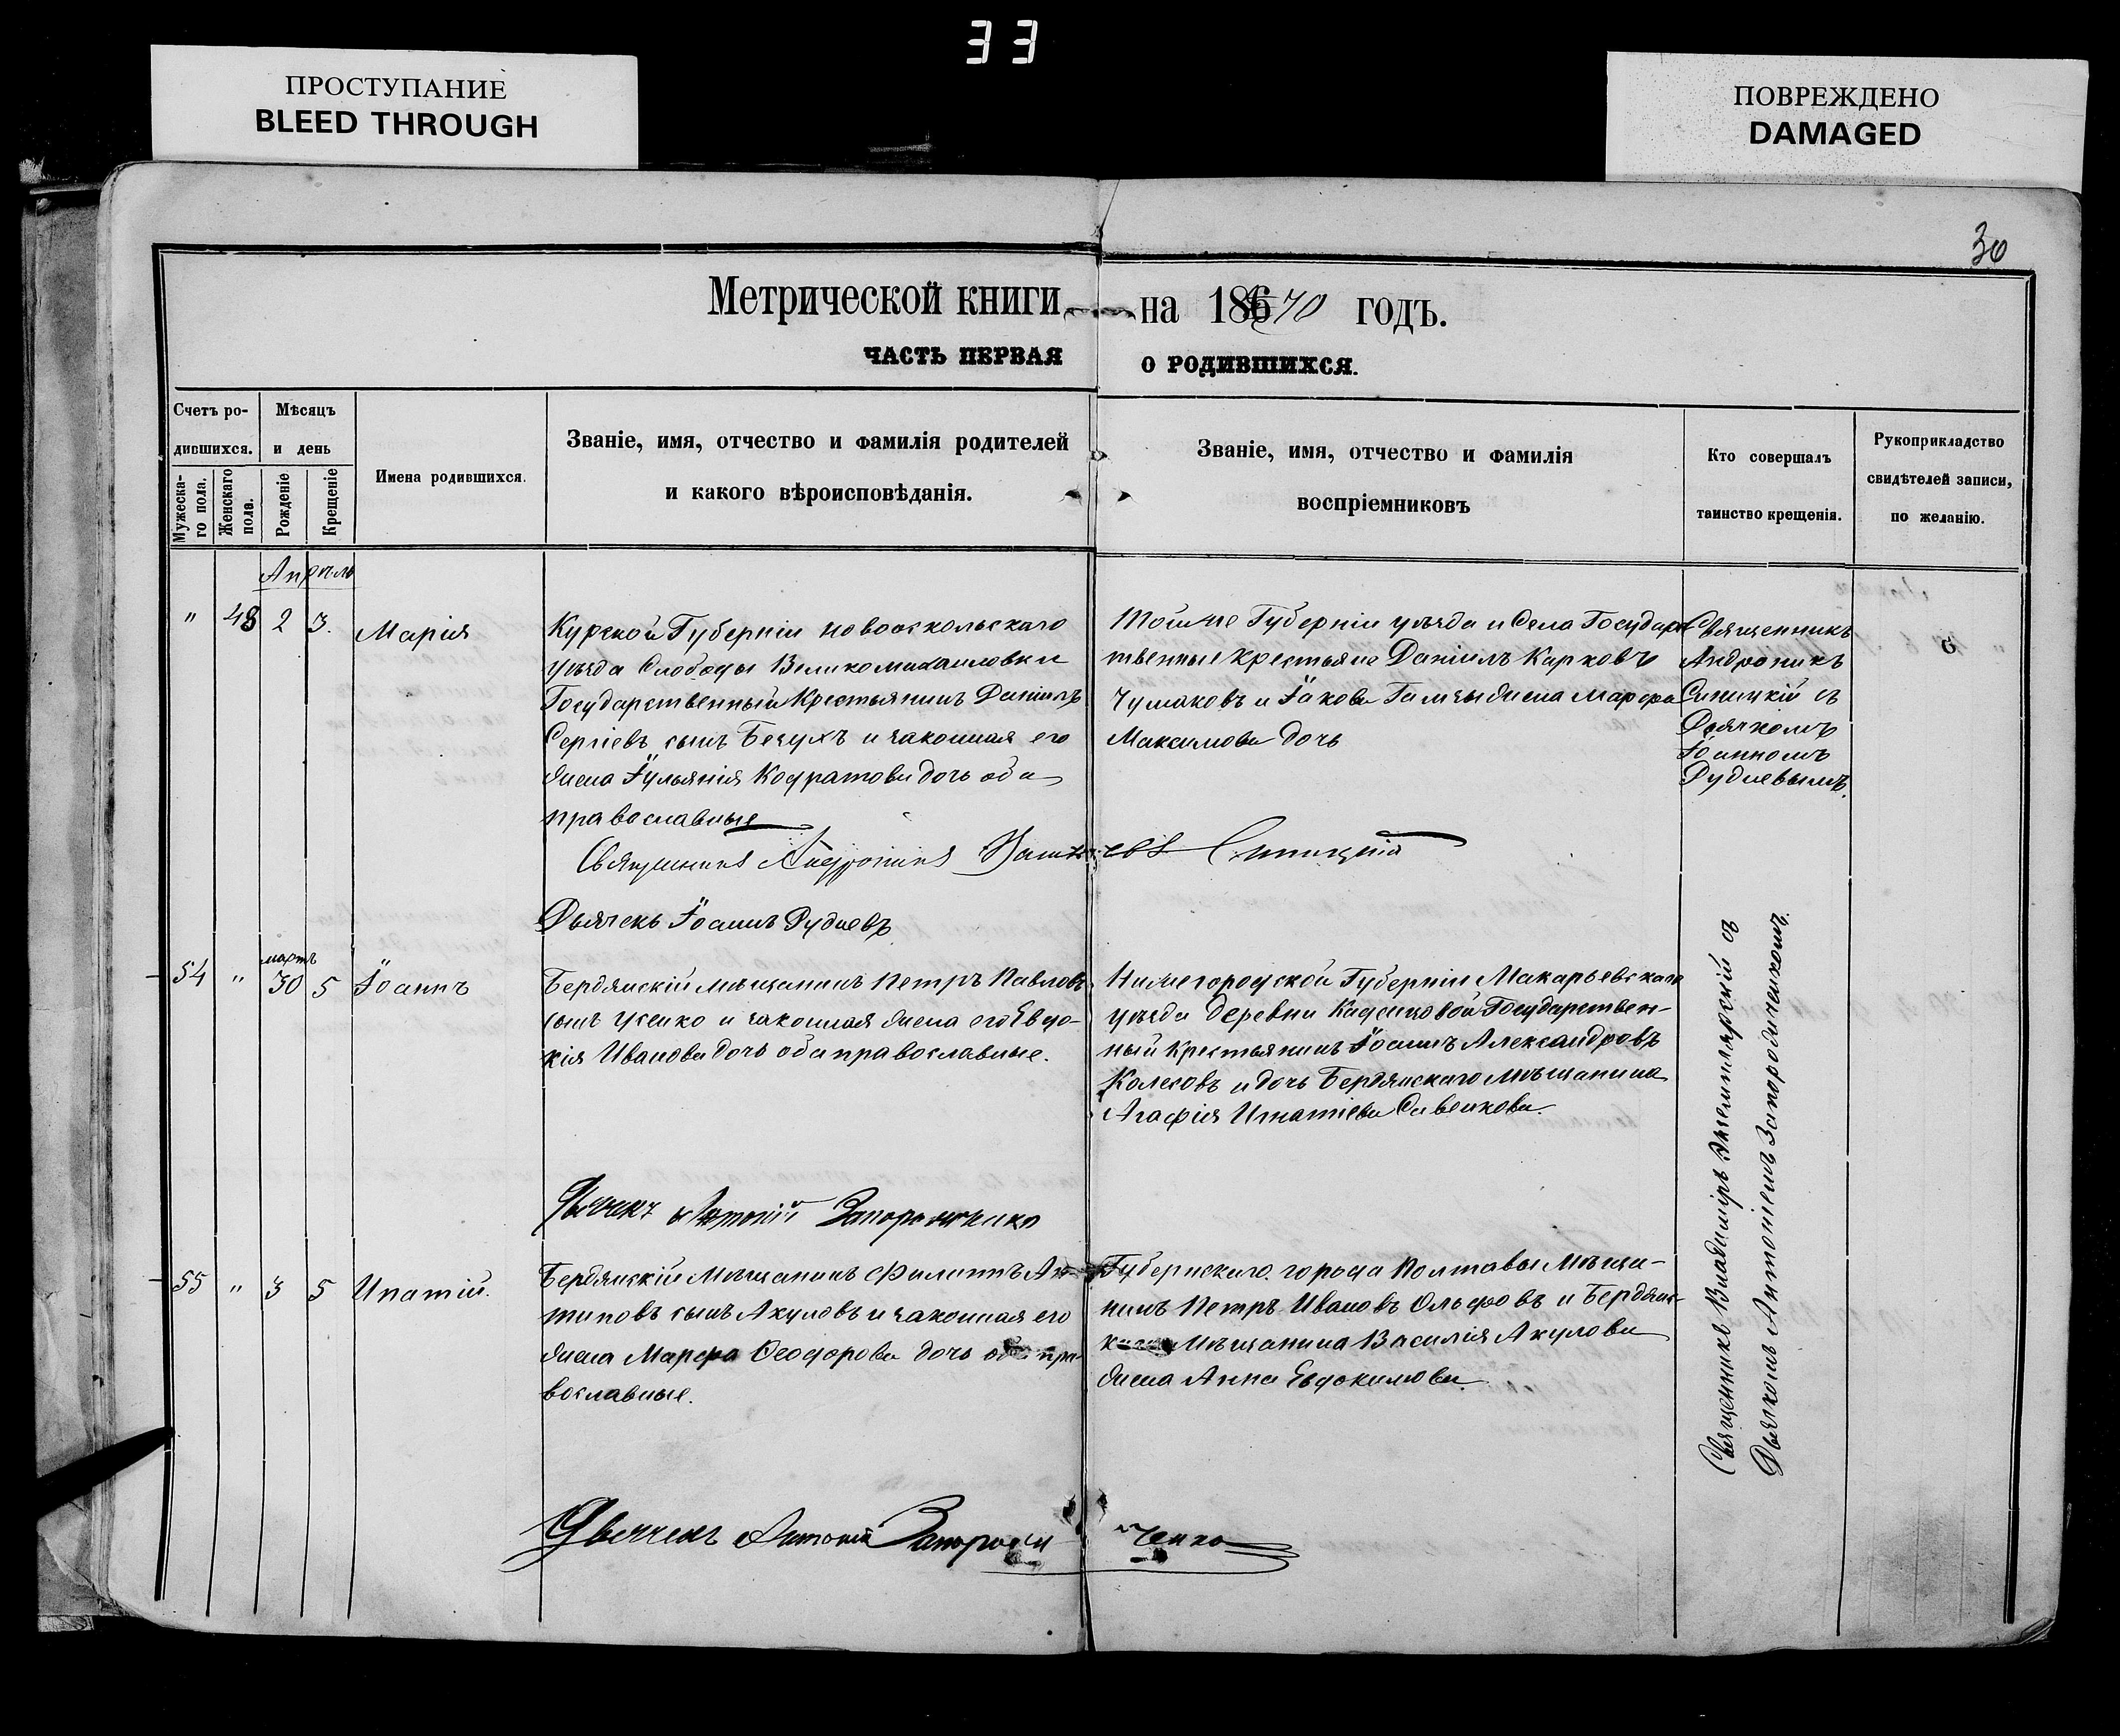 33
ПРОСТУПАНИЕ
BLEED THROUGH
ПОВРЕЖДЕНО
DAMAGED
30
Метрической книги на 1870 годъ.
ЧАСТЬ ПЕРВАЯ О РОДИВШИХСЯ.
Счетъ ро-
дившихся.
Мужеска-
го пола.
Женскаго
пола.
Мѣсяцъ
и день
Рожденіе
Крещеніе
Имена родившихся.
Званіе, имя, отчество и фамилія родителей
и какого вѣроисповѣданія.
Званіе, имя, отчество и фамилія
воспріемниковъ
Кто совершалъ
таинство крещенія.
Рукоприкладство
свидѣтелей записи,
по желанію.
Апрѣль
" 48 2 3. Марія
Курской Губерніи Новооскольскаго
уѣзда Слободы Великомихаиловки
Государственный Крестьянинъ Даніилъ
Сергіевъ сынъ Бечухъ и законная его
жена Іульянія Кодратова дочь оба
православные
Тойже Губерніи уѣзда и Села Государс
твенные крестьяне Даніилъ Карповъ
Чумаковъ и Іакова жена Марфа
Максимова дочь
Священникъ
Андроникъ
Синицкій съ
Дьячкомъ
Іоанномъ
Рудневымъ.
Священникъ Андроникъ Синицкій
Дьячекъ Іоаннъ Рудневъ
мартъ
54 " 30 5 Іоаннъ
Бердянскій мѣщанинъ Петръ Павловъ
сынъ Усенко и законная жена его Евдо-
кія Иванова дочь оба православные.
Нижегородской Губерніи Макарьевскаго
уѣзда деревни Государствен-
ный Крестьянинъ Іоаннъ Александровъ
Колесовъ и дочь Бердянскаго мѣщанина
Агафія Игнатіева Савенкова.
Дьячекъ Антоній Запорожченко
55 " 3 5 Ипатій.
Бердянскій Мѣщанинъ Филиппъ Ан
типовъ сынъ Акуловъ и законная его
жена Марфа Ѳеодорова дочь оба пра-
вославные.
Губернскаго города Полтавы Мѣща-
нинъ Петръ Ивановъ Ольфовъ и Бердянс-
каго Мѣщанина Василія Акулова
жена Анна Евдокимова.
Священникъ Владиміръ Экземплярскій съ
Дьячкомъ Антоніемъ Запорожченкомъ.
Дьячекъ Антоній Запорожченко